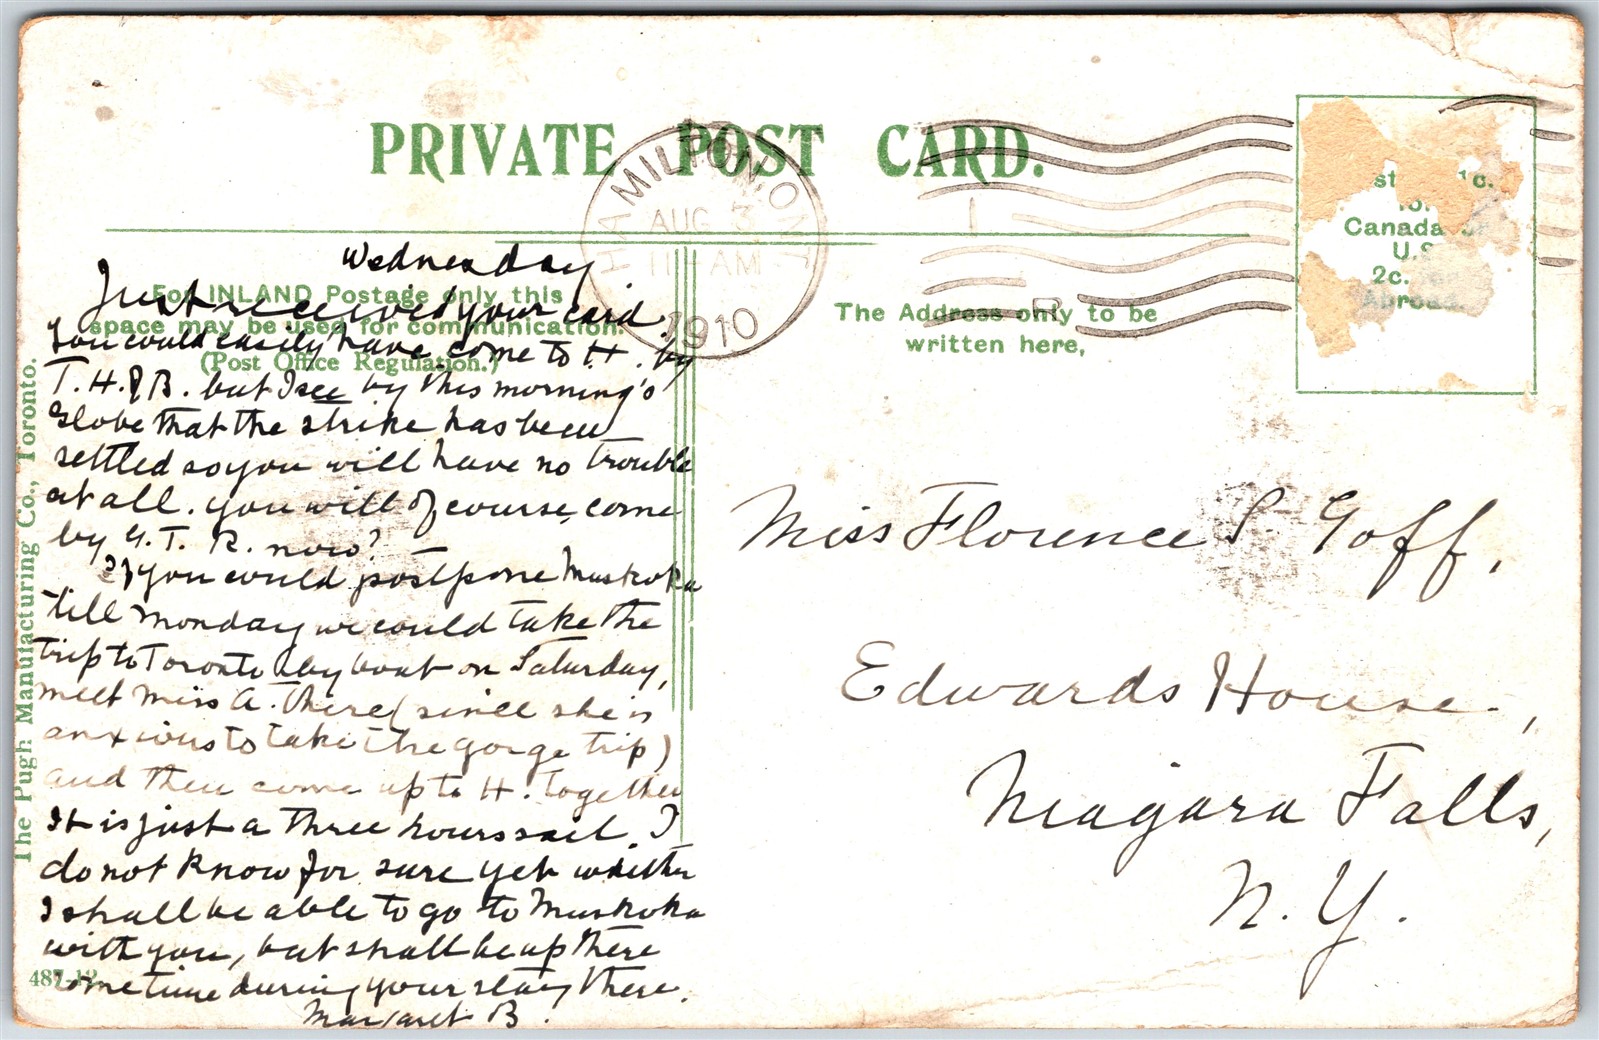 PRIVATE POST CARD.
HAMILTON, ONT
AUG 3
11 AM
1910
Canada
U.S
2c.
Abroad.
For INLAND Postage only this
space may be used for communication.
(Post Office Regulation.)
The Address only to be
written here,
Wednesday
Just received your card.
You could easily have come to H. by
T. H. & B. but I see by this morning's
Globe that the strike has been
settled so you will have no trouble
at all. You will of course, come
by G. T. R. now?
If you could postpone Muskoka
till Monday we could take the
trip to Toronto by boat on Saturday,
meet Miss A. there (since she is
anxious to take the gorge trip)
and then come up to H. together
It is just a three hours sail. I
do not know for sure yet whether
I shall be able to go to Muskoka
with you, but shall be up there
sometime during your stay there.
Margaret B.
Miss Florence S. Goff,
Edwards House,
Niagara Falls,
N. Y.
The Pugh Manufacturing Co., Toronto.
487-12